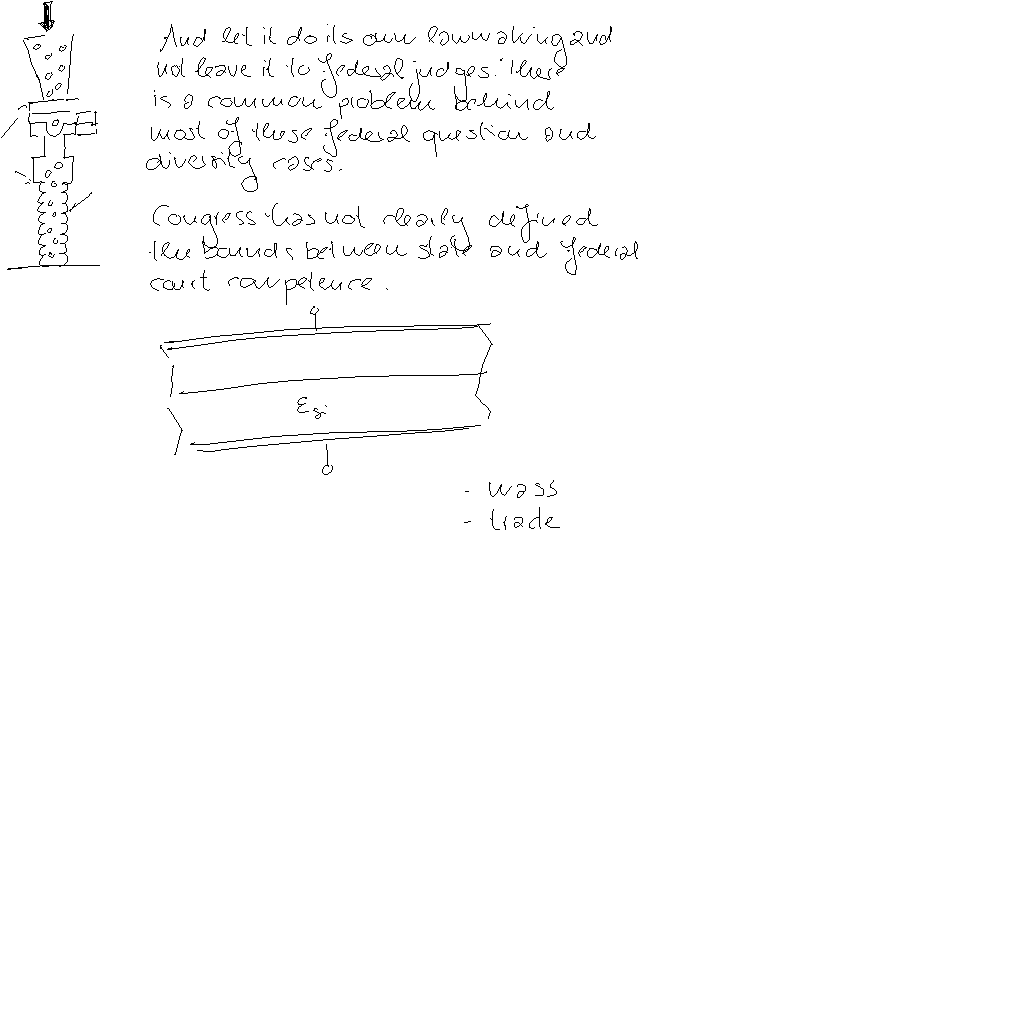 And let it do its own lawmaking and
not leave it to federal judges. There
is a common problem behind
most of these federal question and
diversity cases.
Congress has not clearly defined
the bounds between state and federal
court competence.
- wass
- trade